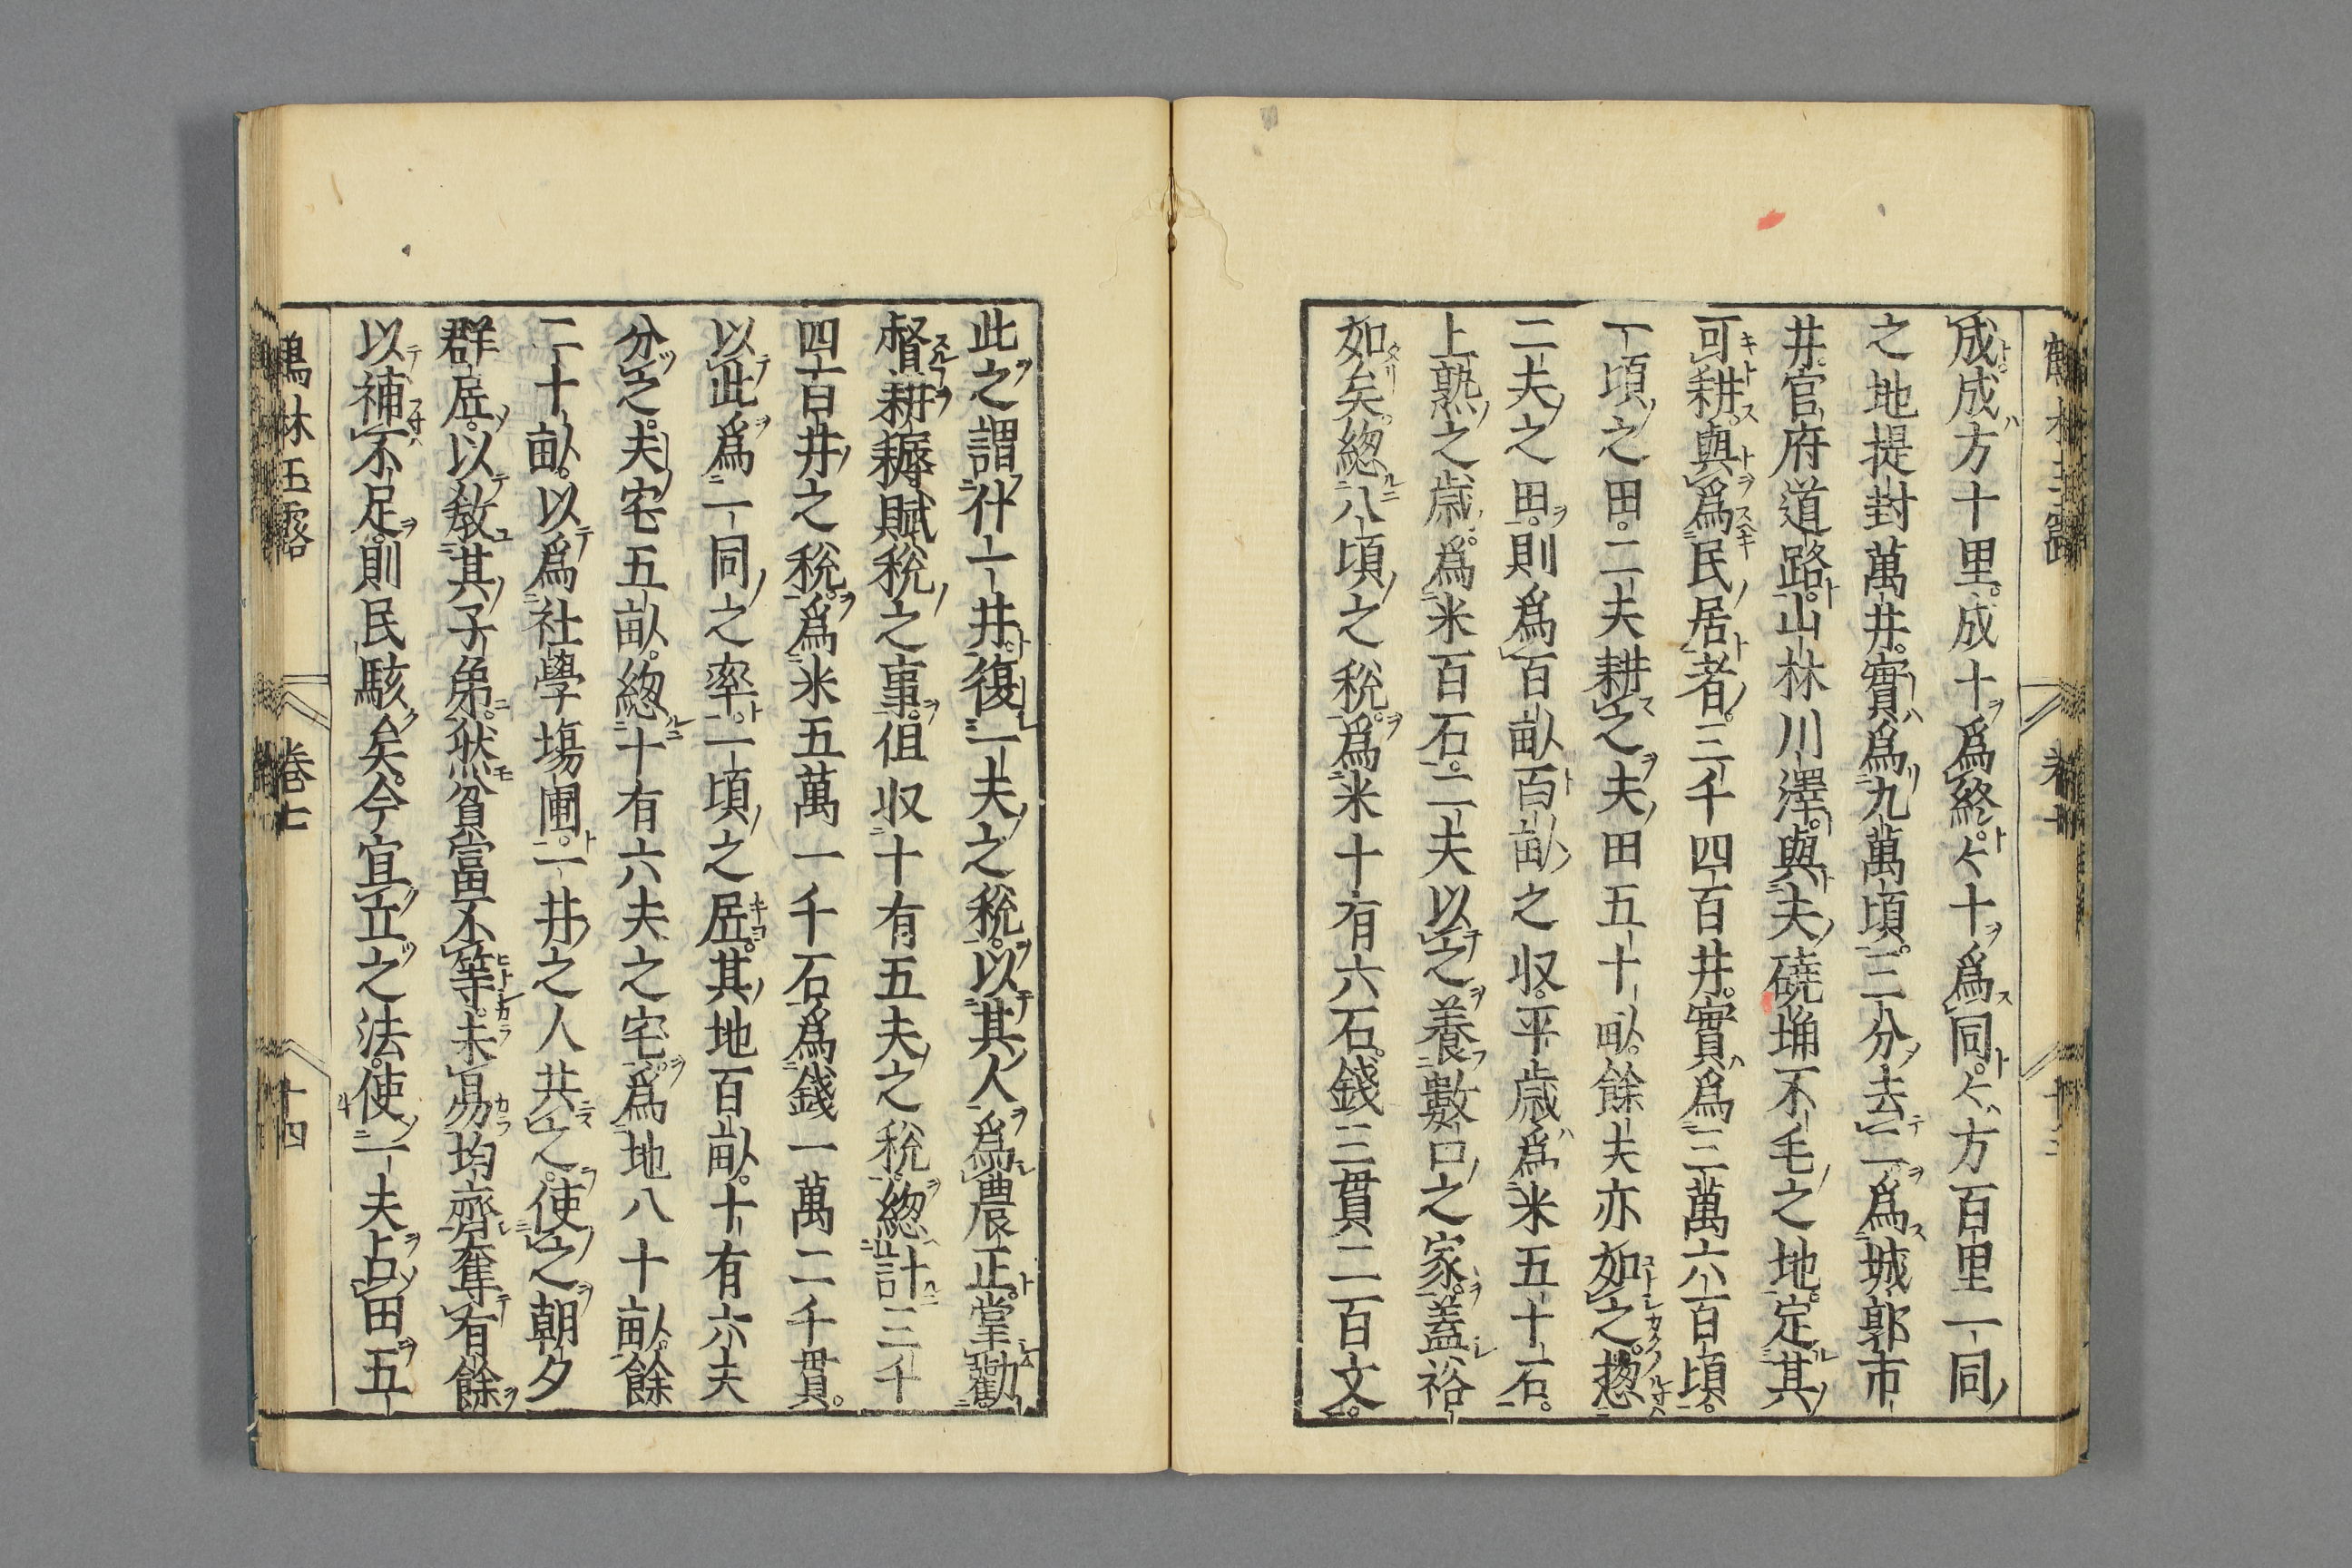 成成方十里。成十爲終。〻十爲同。〻方百里一同
之地提封萬井。實爲九萬頃。三分去二爲城郭市
井。官府道路。山林川澤。與夫磽埆不毛之地。定其
可耕。與爲民居者。三千四百井。實爲三萬六百頃。
一頃之田。二夫耕之。夫田五十畝。餘夫亦如之。揔
二夫之田。則爲百畝。百畝之收。平歲爲米五十石。
上熟之歲。爲米百石。二夫以之養數口之家。蓋裕
如矣。緫八頃之稅。爲米十有六石。錢三貫二百文。
此之謂什一。井復一夫之稅。以其人爲農正。掌勸
督耕耨賦稅之事。但收十有五夫之稅。緫計三千
四百井之稅。爲米五萬一千石。爲錢一萬二千貫。
以此爲一同之率。一頃之居。其地百畝。十有六夫
分之。夫宅五畝。緫十有六夫之宅。爲地八十畝。餘
二十畝。以爲社學場圃。一井之人共之。使之朝夕
群居。以敎其子弟。然貧富不等。未易均齊。奪有餘
以補不足。則民駭矣。今宜立之法。使一夫占田五
鶴林玉露 卷七 十四